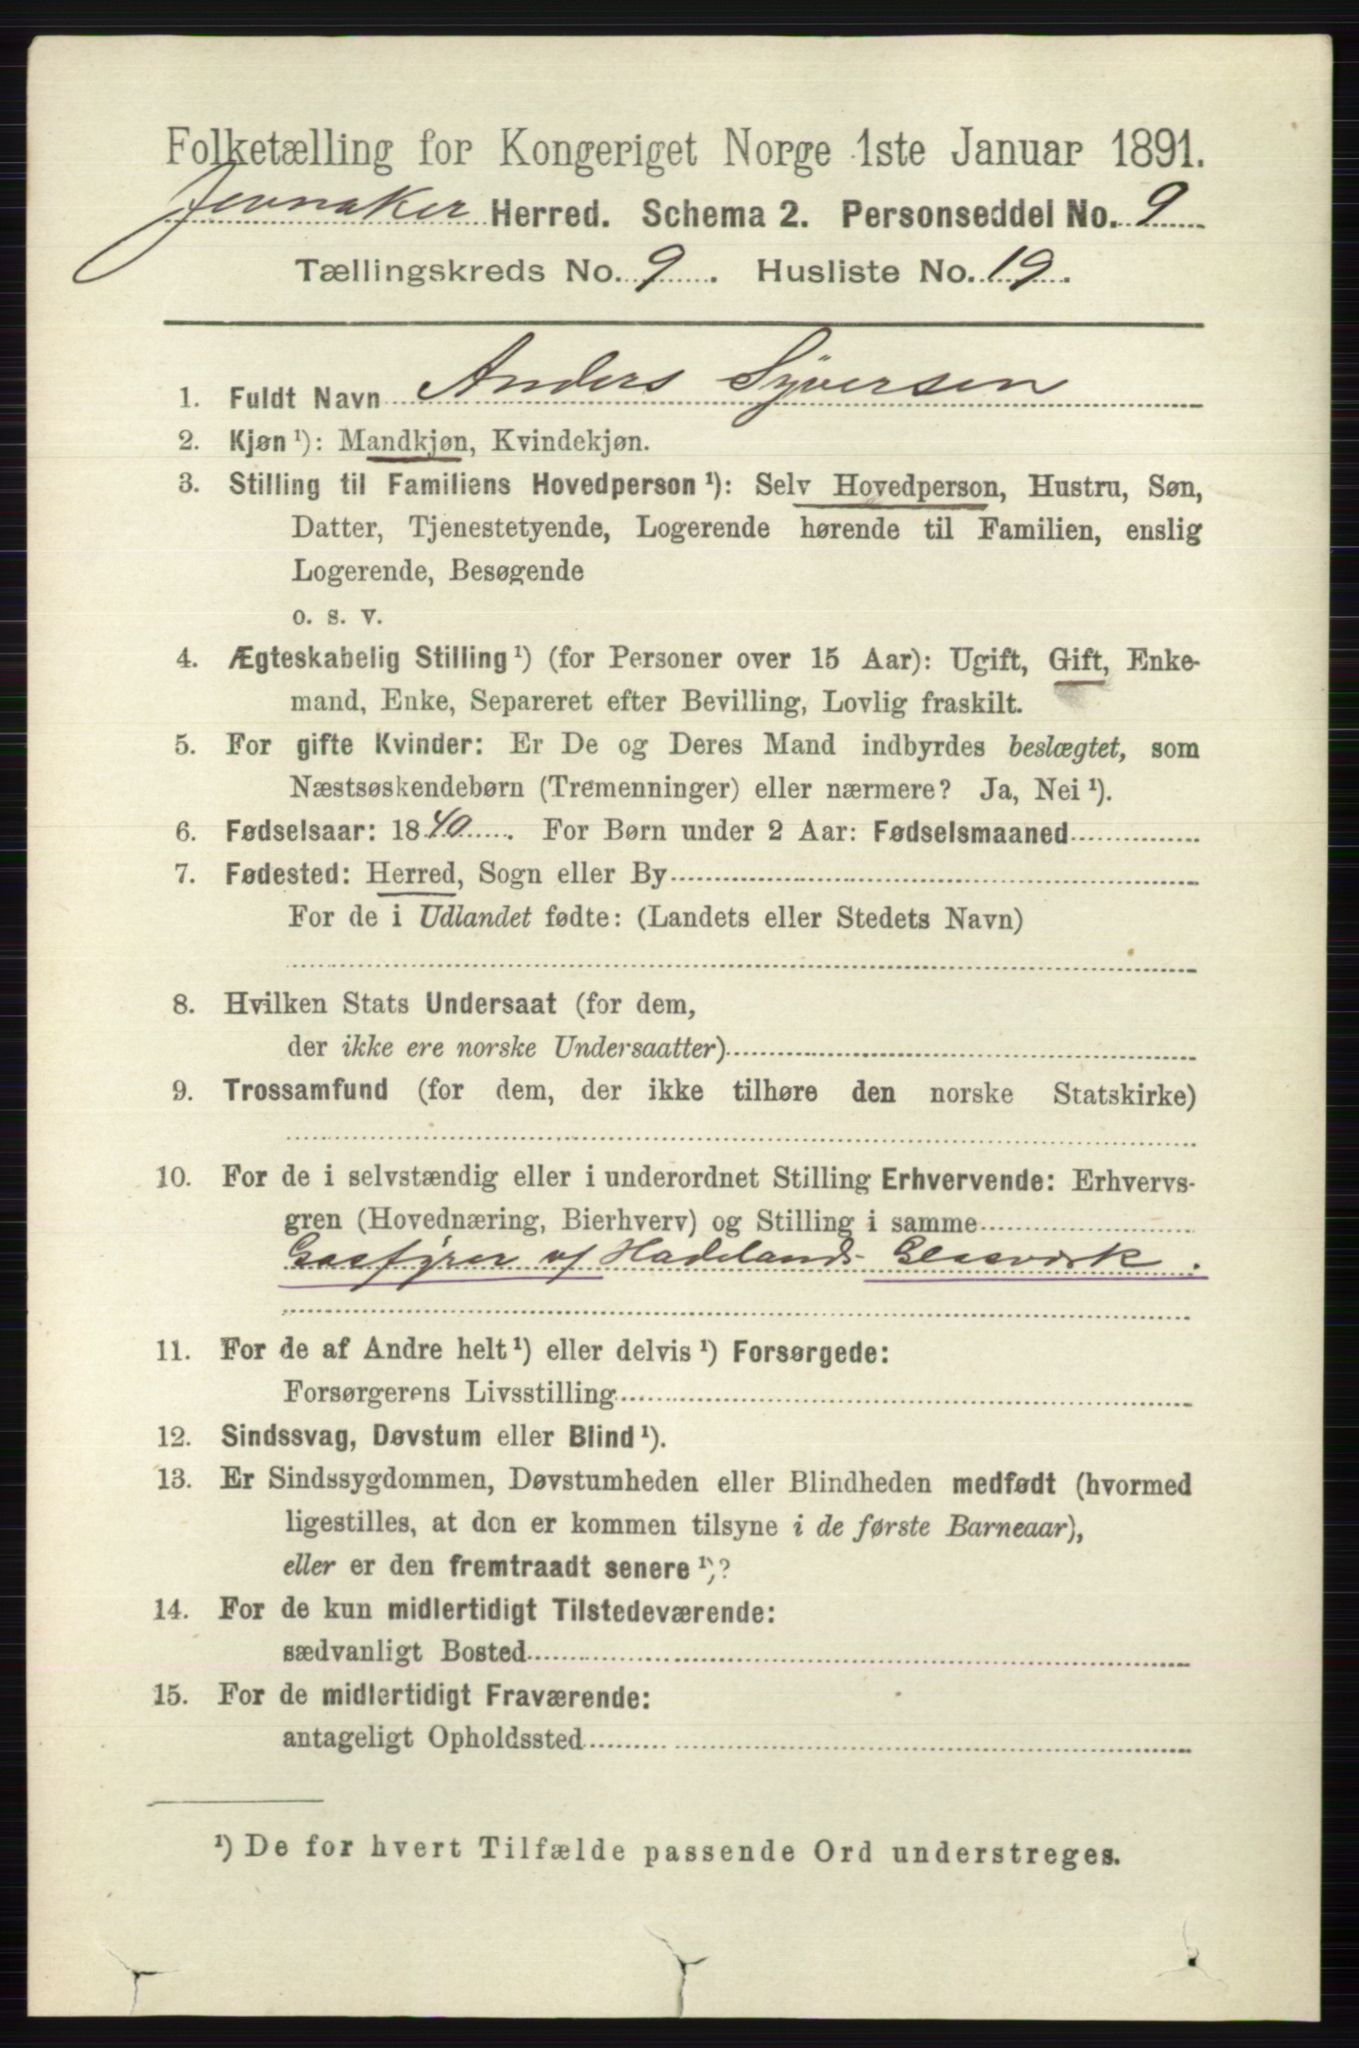 Folketælling for Kongeriget Norge 1ste Januar 1891.
Jevnaker Herred. Schema 2. Personseddel No. 9
Tællingskreds No. 9. Husliste No. 19.
1. Fuldt Navn Anders Syversen
2. Kjøn ¹): Mandkjøn, Kvindekjøn.
3. Stilling til Familiens Hovedperson ¹): Selv Hovedperson, Hustru, Søn,
Datter, Tjenestetyende, Logerende hørende til Familien, enslig
Logerende, Besøgende
o. s. v.
4. Ægteskabelig Stilling ¹) (for Personer over 15 Aar): Ugift, Gift, Enke-
mand, Enke, Separeret efter Bevilling, Lovlig fraskilt.
5. For gifte Kvinder: Er De og Deres Mand indbyrdes beslægtet, som
Næstsøskendebørn (Tremenninger) eller nærmere? Ja, Nei ¹).
6. Fødselsaar: 1840. For Børn under 2 Aar: Fødselsmaaned
7. Fødested: Herred, Sogn eller By
For de i Udlandet fødte: (Landets eller Stedets Navn)
8. Hvilken Stats Undersaat (for dem,
der ikke ere norske Undersaatter)
9. Trossamfund (for dem, der ikke tilhøre den norske Statskirke)
10. For de i selvstændig eller i underordnet Stilling Erhvervende: Erhvervs-
gren (Hovednæring, Bierhverv) og Stilling i samme
Gasfyrer v/ Hadelands Glasværk.
11. For de af Andre helt ¹) eller delvis ¹) Forsørgede:
Forsørgerens Livsstilling
12. Sindssvag, Døvstum eller Blind ¹).
13. Er Sindssygdommen, Døvstumheden eller Blindheden medfødt (hvormed
ligestilles, at den er kommen tilsyne i de første Barneaar),
eller er den fremtraadt senere ¹)?
14. For de kun midlertidigt Tilstedeværende:
sædvanligt Bosted
15. For de midlertidigt Fraværende:
antageligt Opholdssted
¹) De for hvert Tilfælde passende Ord understreges.